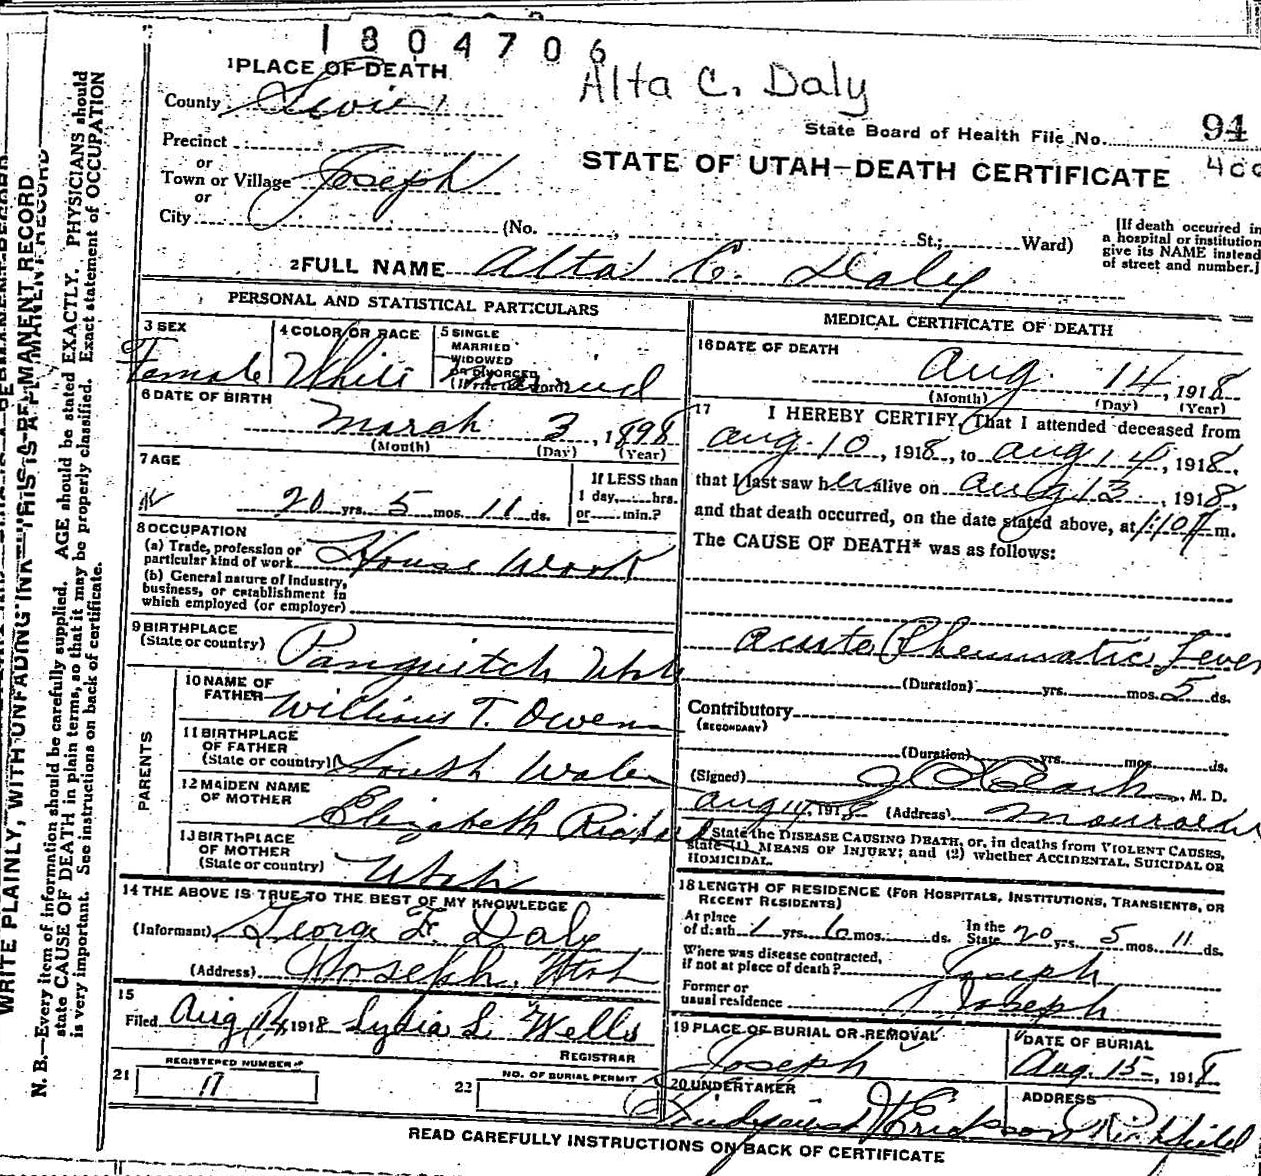 1804706
Alta C. Daly
1 PLACE OF DEATH
County Sevier
State Board of Health File No. 94
Precinct
or
Town or Village Joseph
or
City (No. , St.; Ward)
STATE OF UTAH—DEATH CERTIFICATE
[If death occurred in
a hospital or institution
give its NAME instead
of street and number.]
2 FULL NAME Alta C. Daly
PERSONAL AND STATISTICAL PARTICULARS
3 SEX
Female
4 COLOR OR RACE
White
5 SINGLE
MARRIED
WIDOWED
OR DIVORCED
(Write the word)
Married
6 DATE OF BIRTH
March 3, 1898
(Month) (Day) (Year)
7 AGE
20 yrs. 5 mos. 11 ds.
If LESS than
1 day, hrs.
or min.?
8 OCCUPATION
(a) Trade, profession or
particular kind of work House Work
(b) General nature of Industry,
business, or establishment in
which employed (or employer)
9 BIRTHPLACE
(State or country) Panguitch Utah
PARENTS
10 NAME OF
FATHER William T. Owens
11 BIRTHPLACE
OF FATHER
(State or country) South Wales
12 MAIDEN NAME
OF MOTHER Elizabeth
13 BIRTHPLACE
OF MOTHER
(State or country) Utah
14 THE ABOVE IS TRUE TO THE BEST OF MY KNOWLEDGE
(Informant) George F. Daly
(Address) Joseph, Utah
15
Filed Aug 14, 1918 Lydia L Wells
REGISTRAR
21 REGISTERED NUMBER
17
22 NO. OF BURIAL PERMIT
MEDICAL CERTIFICATE OF DEATH
16 DATE OF DEATH
Aug. 14, 1918
(Month) (Day) (Year)
17 I HEREBY CERTIFY, That I attended deceased from
Aug 10, 1918, to Aug 14, 1918,
that I last saw her alive on Aug 13, 1918,
and that death occurred, on the date stated above, at m.
The CAUSE OF DEATH* was as follows:
Acute Rheumatic Fever
(Duration) yrs. mos. 5 ds.
Contributory
(SECONDARY)
(Duration) yrs. mos. ds.
(Signed) M. D.
Aug 14, 1918 (Address) Monroe
State the DISEASE CAUSING DEATH, or, in deaths from VIOLENT CAUSES,
state (1) MEANS OF INJURY; and (2) whether ACCIDENTAL, SUICIDAL OR
HOMICIDAL.
18 LENGTH OF RESIDENCE (FOR HOSPITALS, INSTITUTIONS, TRANSIENTS, OR
RECENT RESIDENTS)
At place
of death 1 yrs. 6 mos. ds. In the
State 20 yrs. 5 mos. 11 ds.
Where was disease contracted,
if not at place of death? Joseph
Former or
usual residence Joseph
19 PLACE OF BURIAL OR REMOVAL
Joseph
DATE OF BURIAL
Aug. 15, 1918
20 UNDERTAKER
ADDRESS
Richfield
READ CAREFULLY INSTRUCTIONS ON BACK OF CERTIFICATE
WRITE PLAINLY, WITH UNFADING INK—THIS IS A PERMANENT RECORD
N. B.—Every item of information should be carefully supplied. AGE should be stated EXACTLY. PHYSICIANS should
state CAUSE OF DEATH in plain terms, so that it may be properly classified. Exact statement of OCCUPATION
is very important. See instructions on back of certificate.